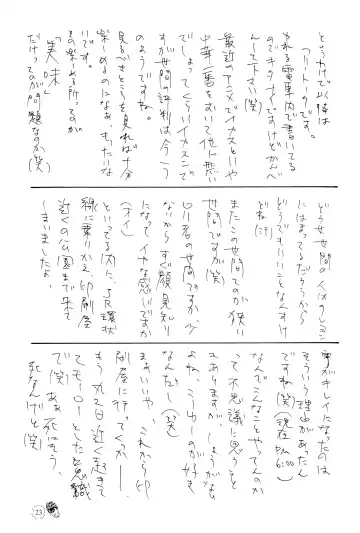 というわけで以降は
フリートークです。
ゆれる電車内で書いてる
のでキタナイですけどかんべ
んして下さい(笑)
最近のアニメでイカスといや
中華一番をおいて他に無い
でしょってこういイカスニで
すが世間の評判は今一つ
のようですね。
見るべきところを見れば十分
楽しめるのになぁ。もったいな
いです。
その楽しめる所ってのが
「美味」
だけってのが問題なのか(笑)
どうせ世間の人はクレヨン
にはまってるだろうから
どうでもいいことなんすけ
どね(汗)
またこの世間てのが狭い
世間ですが(笑)
同じ者の世間ですが少
ないからすぐ顔見知り
になってイヤな感じですか
(オイ)
といってる内にJR環状
線に乗りかえ、印刷屋
近くの公園まで来て
しまいましたよ。
字がキレイになったのは
そういう理由があったん
ですね(笑)(現在PM6:00)
なんでこんなことやってんのか
って不思議に思うこと
もありますが、しょうがない
よね、こーゆーのが好き
なんだし(笑)
まぁいいや、これから印
刷屋に行てくっか——
もう丸2日近く起きて
てもーローとした意識
で(笑)あぁ死にそう、
死なんけど(笑)
23